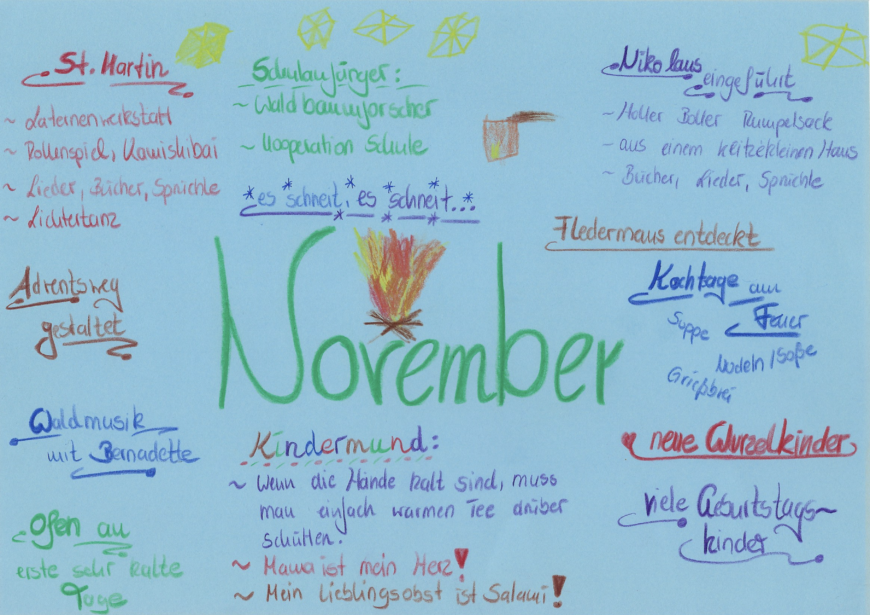 St. Martin
~ Laternenwerkstatt
~ Rollenspiel, Kamishibai
~ Lieder, Bücher, Sprüchle
~ Lichtertanz
Schulanfänger:
~ Waldbaumforscher
~ Kooperation Schule
*es schneit, es schneit...*
Nikolaus
eingeführt
~ Holler Boller Rumpelsack
~ aus einem klitzekleinen Haus
~ Bücher, Lieder, Sprüchle
Fledermaus entdeckt
Adventsweg
gestaltet
November
Kochtage am
Feuer
Suppe
Nudeln / Soße
Grießbrei
Waldmusik
mit Bernadette
Kindermund:
~ Wenn die Hände kalt sind, muss
man einfach warmen Tee drüber
schütten.
~ Mama ist mein Herz!
~ Mein Lieblingsobst ist Salami!
neue Wurzelkinder
viele Geburtstags~
kinder
Ofen an
erste sehr kalte
Tage